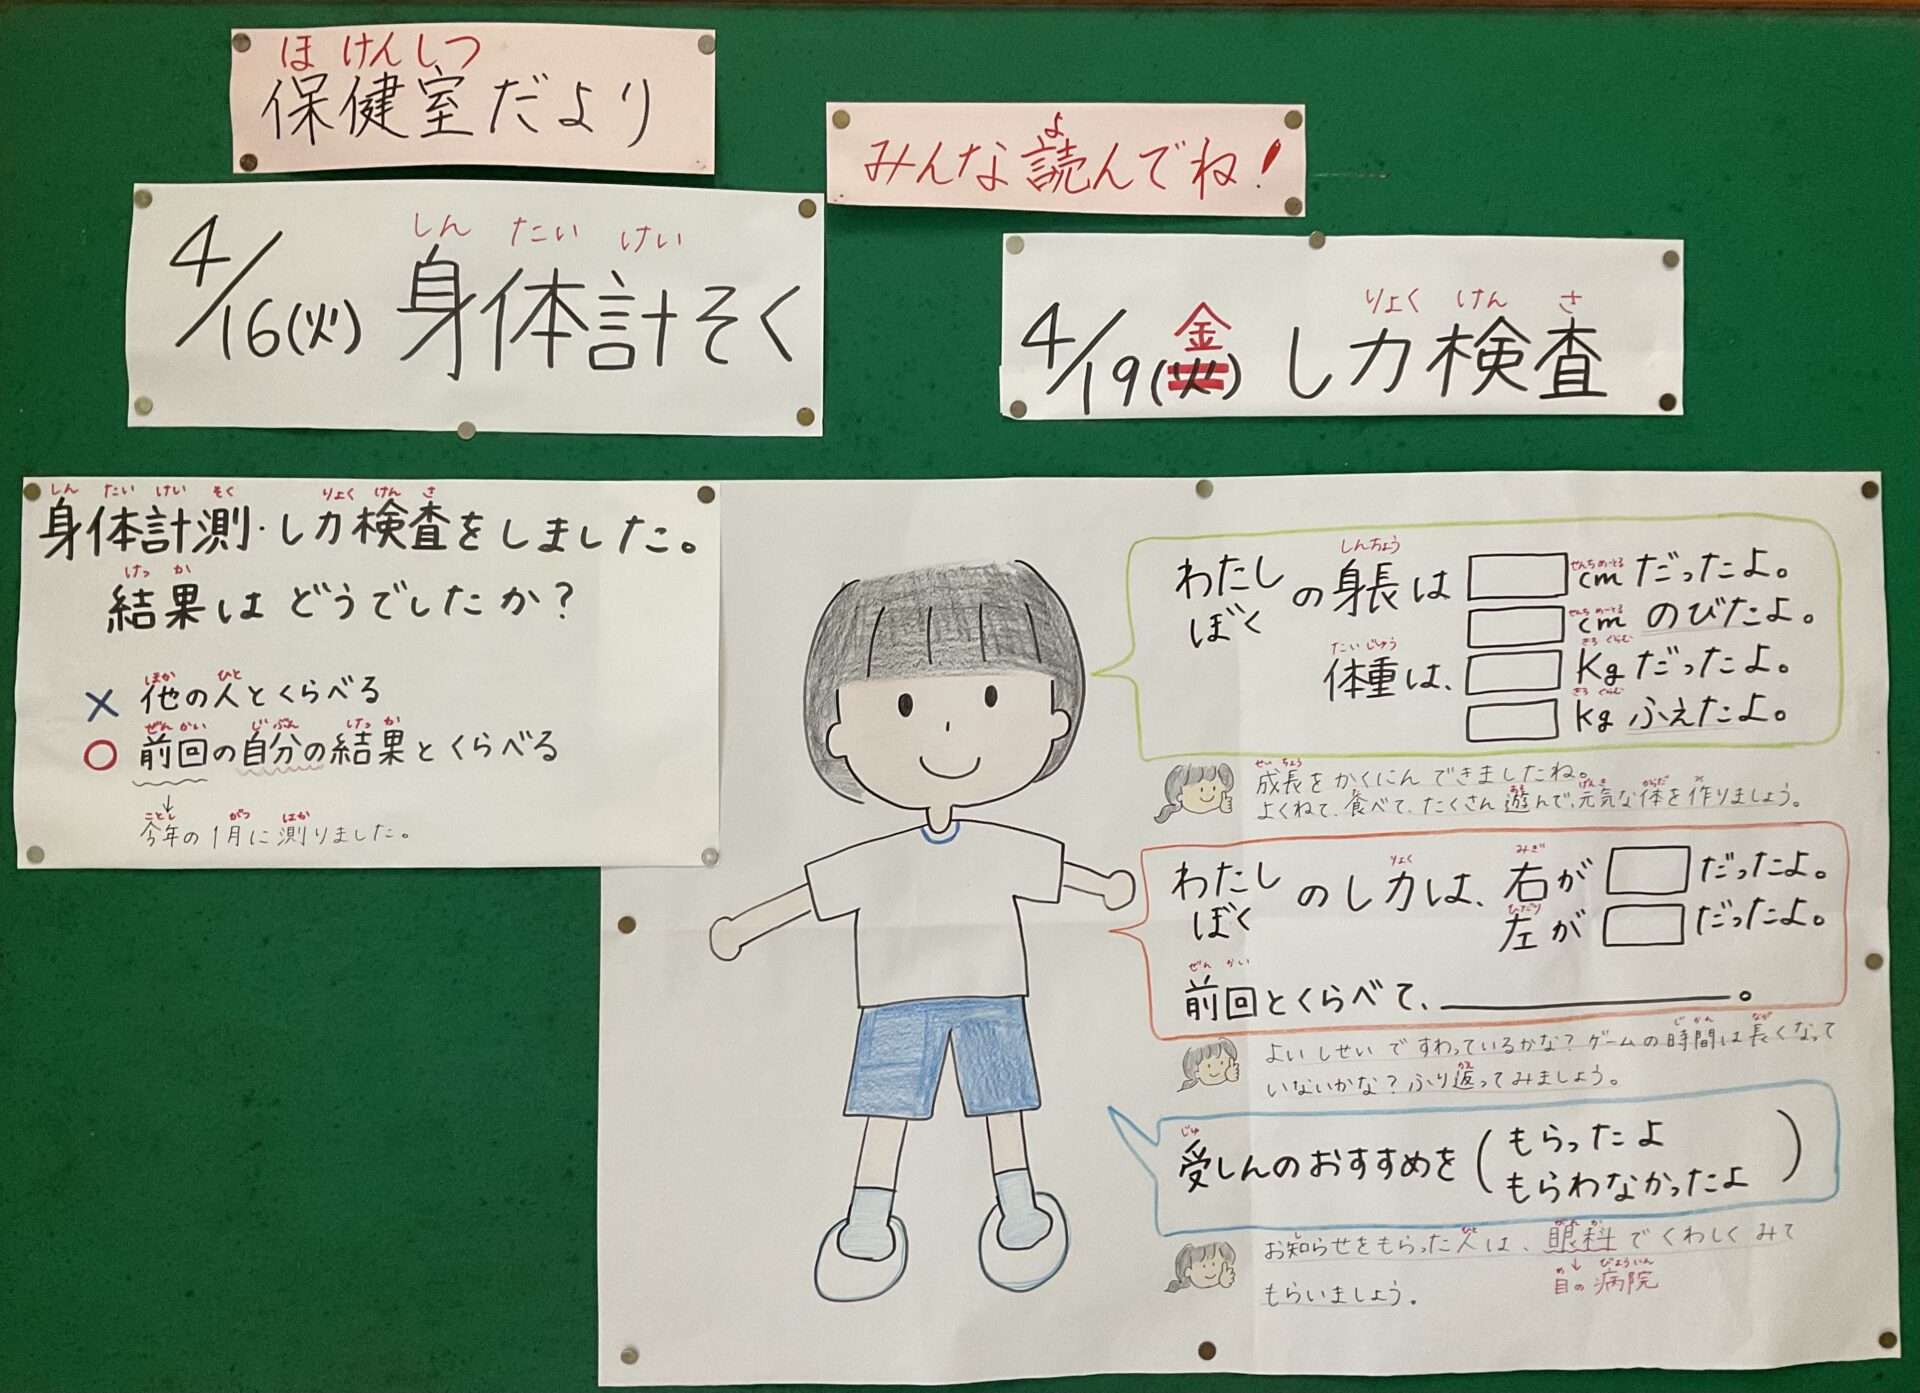 ほけんしつ
保健室だより
よ
みんな読んでね!
しんたいけい
4/16(火) 身体計そく
りょくけんさ
金
4/19(火) し力検査
しんたいけいそく りょくけんさ
身体計測・し力検査をしました。
けっか
結果はどうでしたか?
ほか ひと
× 他の人とくらべる
ぜんかい じぶん けっか
○ 前回の自分の結果とくらべる
↓
ことし がつ はか
今年の1月に測りました。
しんちょう せんちめーとる
わたし の身長は cmだったよ。
ぼく
せんちめーとる
cmのびたよ。
たいじゅう きろぐらむ
体重は、 kgだったよ。
きろぐらむ
kgふえたよ。
せいちょう
成長をかくにんできましたね。
た あそ げんき からだ つく
よくねて、食べて、たくさん遊んで、元気な体を作りましょう。
りょく みぎ
わたし のし力は、右が だったよ。
ぼく
ひだり
左が だったよ。
ぜんかい
前回とくらべて、 。
じかん なが
よいしせいですわっているかな?ゲームの時間は長くなって
かえ
いないかな?ふり返ってみましょう。
じゅ
受しんのおすすめを(もらったよ
もらわなかったよ)
し ひと がんか
お知らせをもらった人は、眼科でくわしくみて
↓
め びょういん
目の病院
もらいましょう。